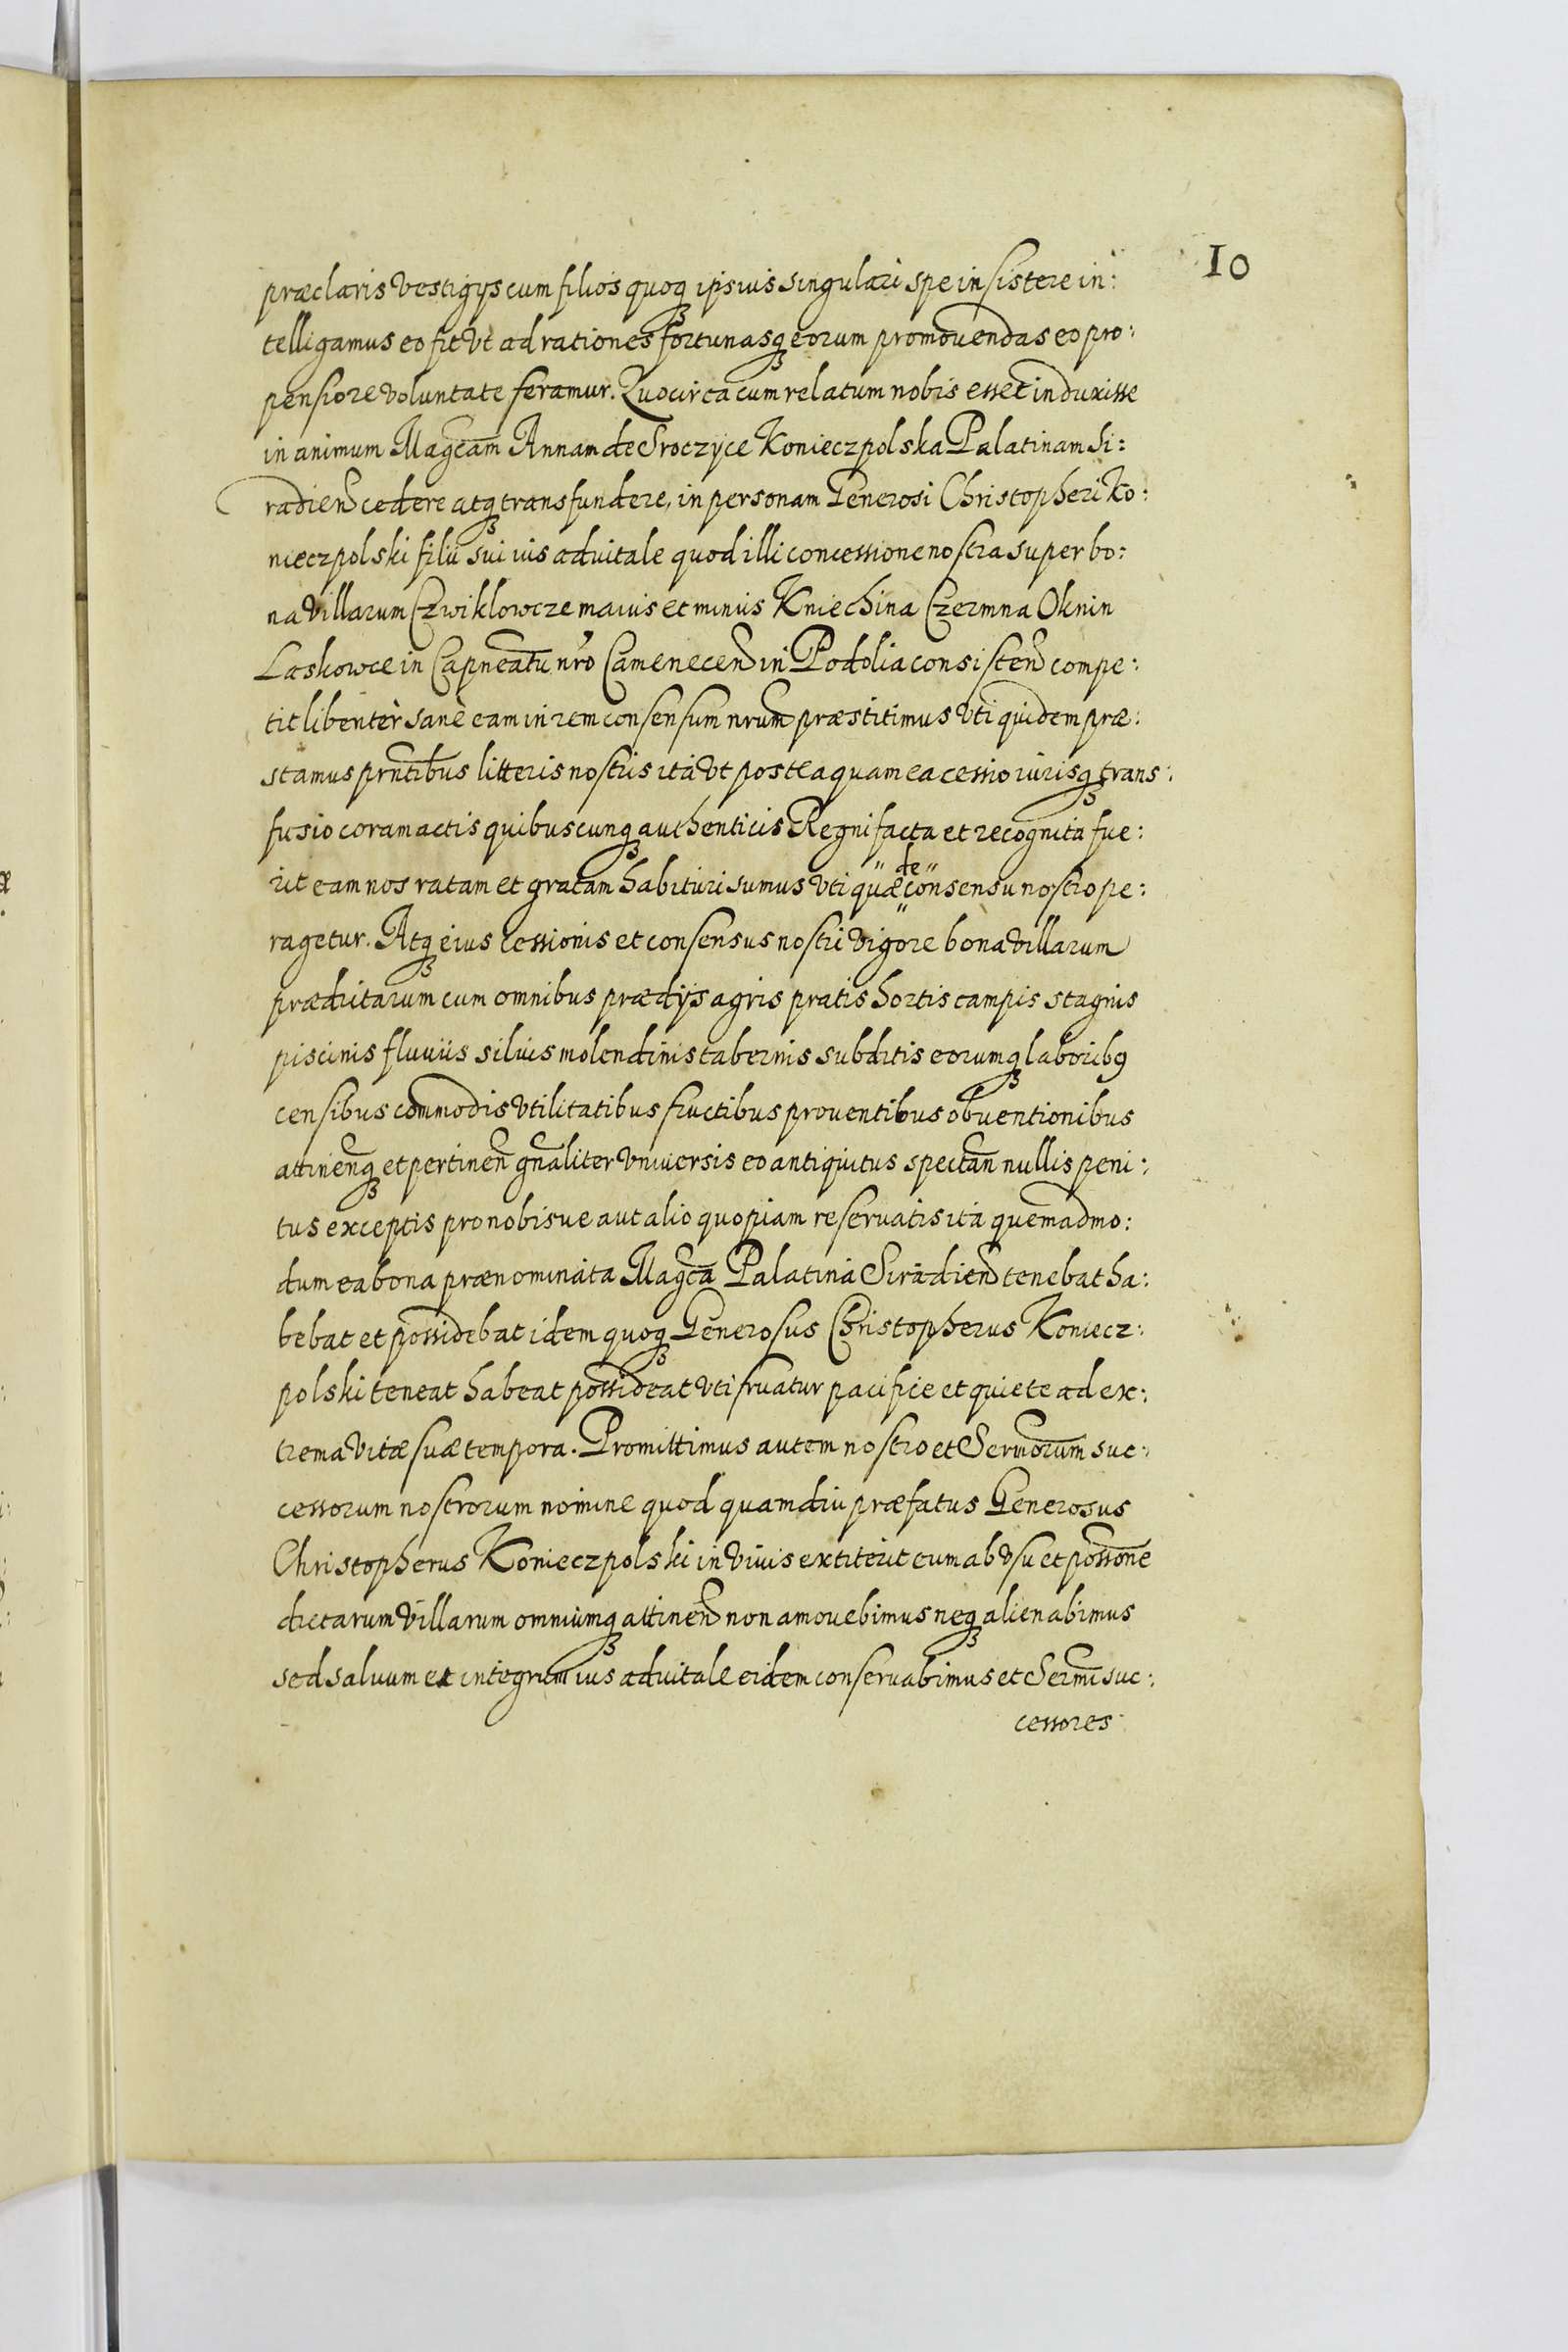 10
præclaris vestigÿs cum filios quoqꝫ ipsius singulari spe insistere in:
telligamus eo fit vt ad rationes fortunasqꝫ eorum promovendas eo pro:
pensiore voluntate feramur. Quocirca cum relatum nobis esset induxisse
in animum Magcam Annam de Sroczÿce Konieczpolska Palatinam Si:
radien cedere atqꝫ transfundere, in personam Generosi Christopheri Ko:
nieczpolski filii sui ius advitale quod illi concessione nostra super bo:
na villarum Czwiklowcze maius et minus Kniechina Czermna Oknin
Laskowce in Capneatu nro Camenecen in Podolia consisten compe:
tit libentèr sanè eam in rem consensum nrum præstitimus vti quidem præ:
stamus prntibus litteris nostris ita vt posteaquam ea cessio iurisqꝫ trans:
fusio coram actis quibuscunqꝫ authenticis Regni facta et recognita fue:
rit eam nos ratam et gratam habituri sumus vti quæ de consensu nostro pe:
ragetur. Atqꝫ eius cessionis et consensus nostri vigore bona villarum
prædictarum cum omnibus prædÿs agris pratis hortis campis stagnis
piscinis fluuiis siluis molendinis tabernis subditis eorumqꝫ laboribꝰ
censibus commodis vtilitatibus fructibus prouentibus obuentionibus
attinenqꝫ et pertinen gnaliter vniuersis eo antiquitus spectan nullis peni:
tus exceptis pro nobis ue aut alio quopiam reseruatis ita quemadmo:
dum ea bona prænominata Magca Palatina Siradien tenebat ha:
bebat et possidebat idem quoqꝫ Generosus Christopherus Koniecz:
polski teneat habeat possideat vti fruatur pacifice et quiete ad ex:
trema vitæ suæ tempora. Promittimus autem nostro et Sermorum suc:
cessorum nostrorum nomine quod quamdiu præfatus Generosus
Christopherus Konieczpolski in viuis extiterit eum ab vsu et possone
dictarum villarum omniumqꝫ attinen non amouebimus neqꝫ alienabimus
sed saluum et integrum ius advitale eidem conseruabimus et Sermi suc:
cessores